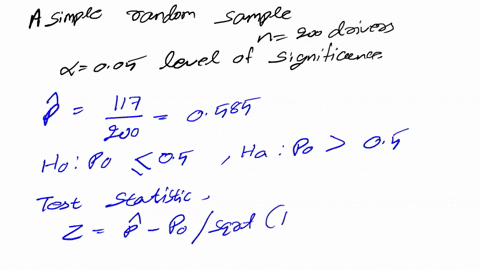 A simple random sample
n = 200 drivers
α = 0.05 level of significance
p̂ = 117/200 = 0.585
Ho : Po ≤ 0.5 , Ha : Po > 0.5
Test Statistic,
Z = p̂ - Po / sqrt (1